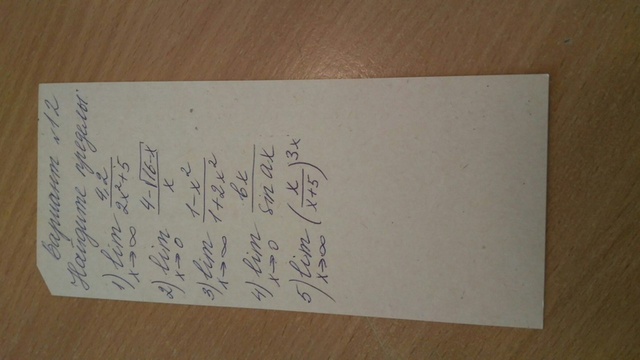 Вариант №12
Найдите пределы:
1) lim x→∞ 4x/(2x²+5)
2) lim x→0 (4-√(16-x))/x
3) lim x→∞ (1-x²)/(1+2x²)
4) lim x→0 bx/(sin ax)
5) lim x→∞ (x/(x+5))^3x